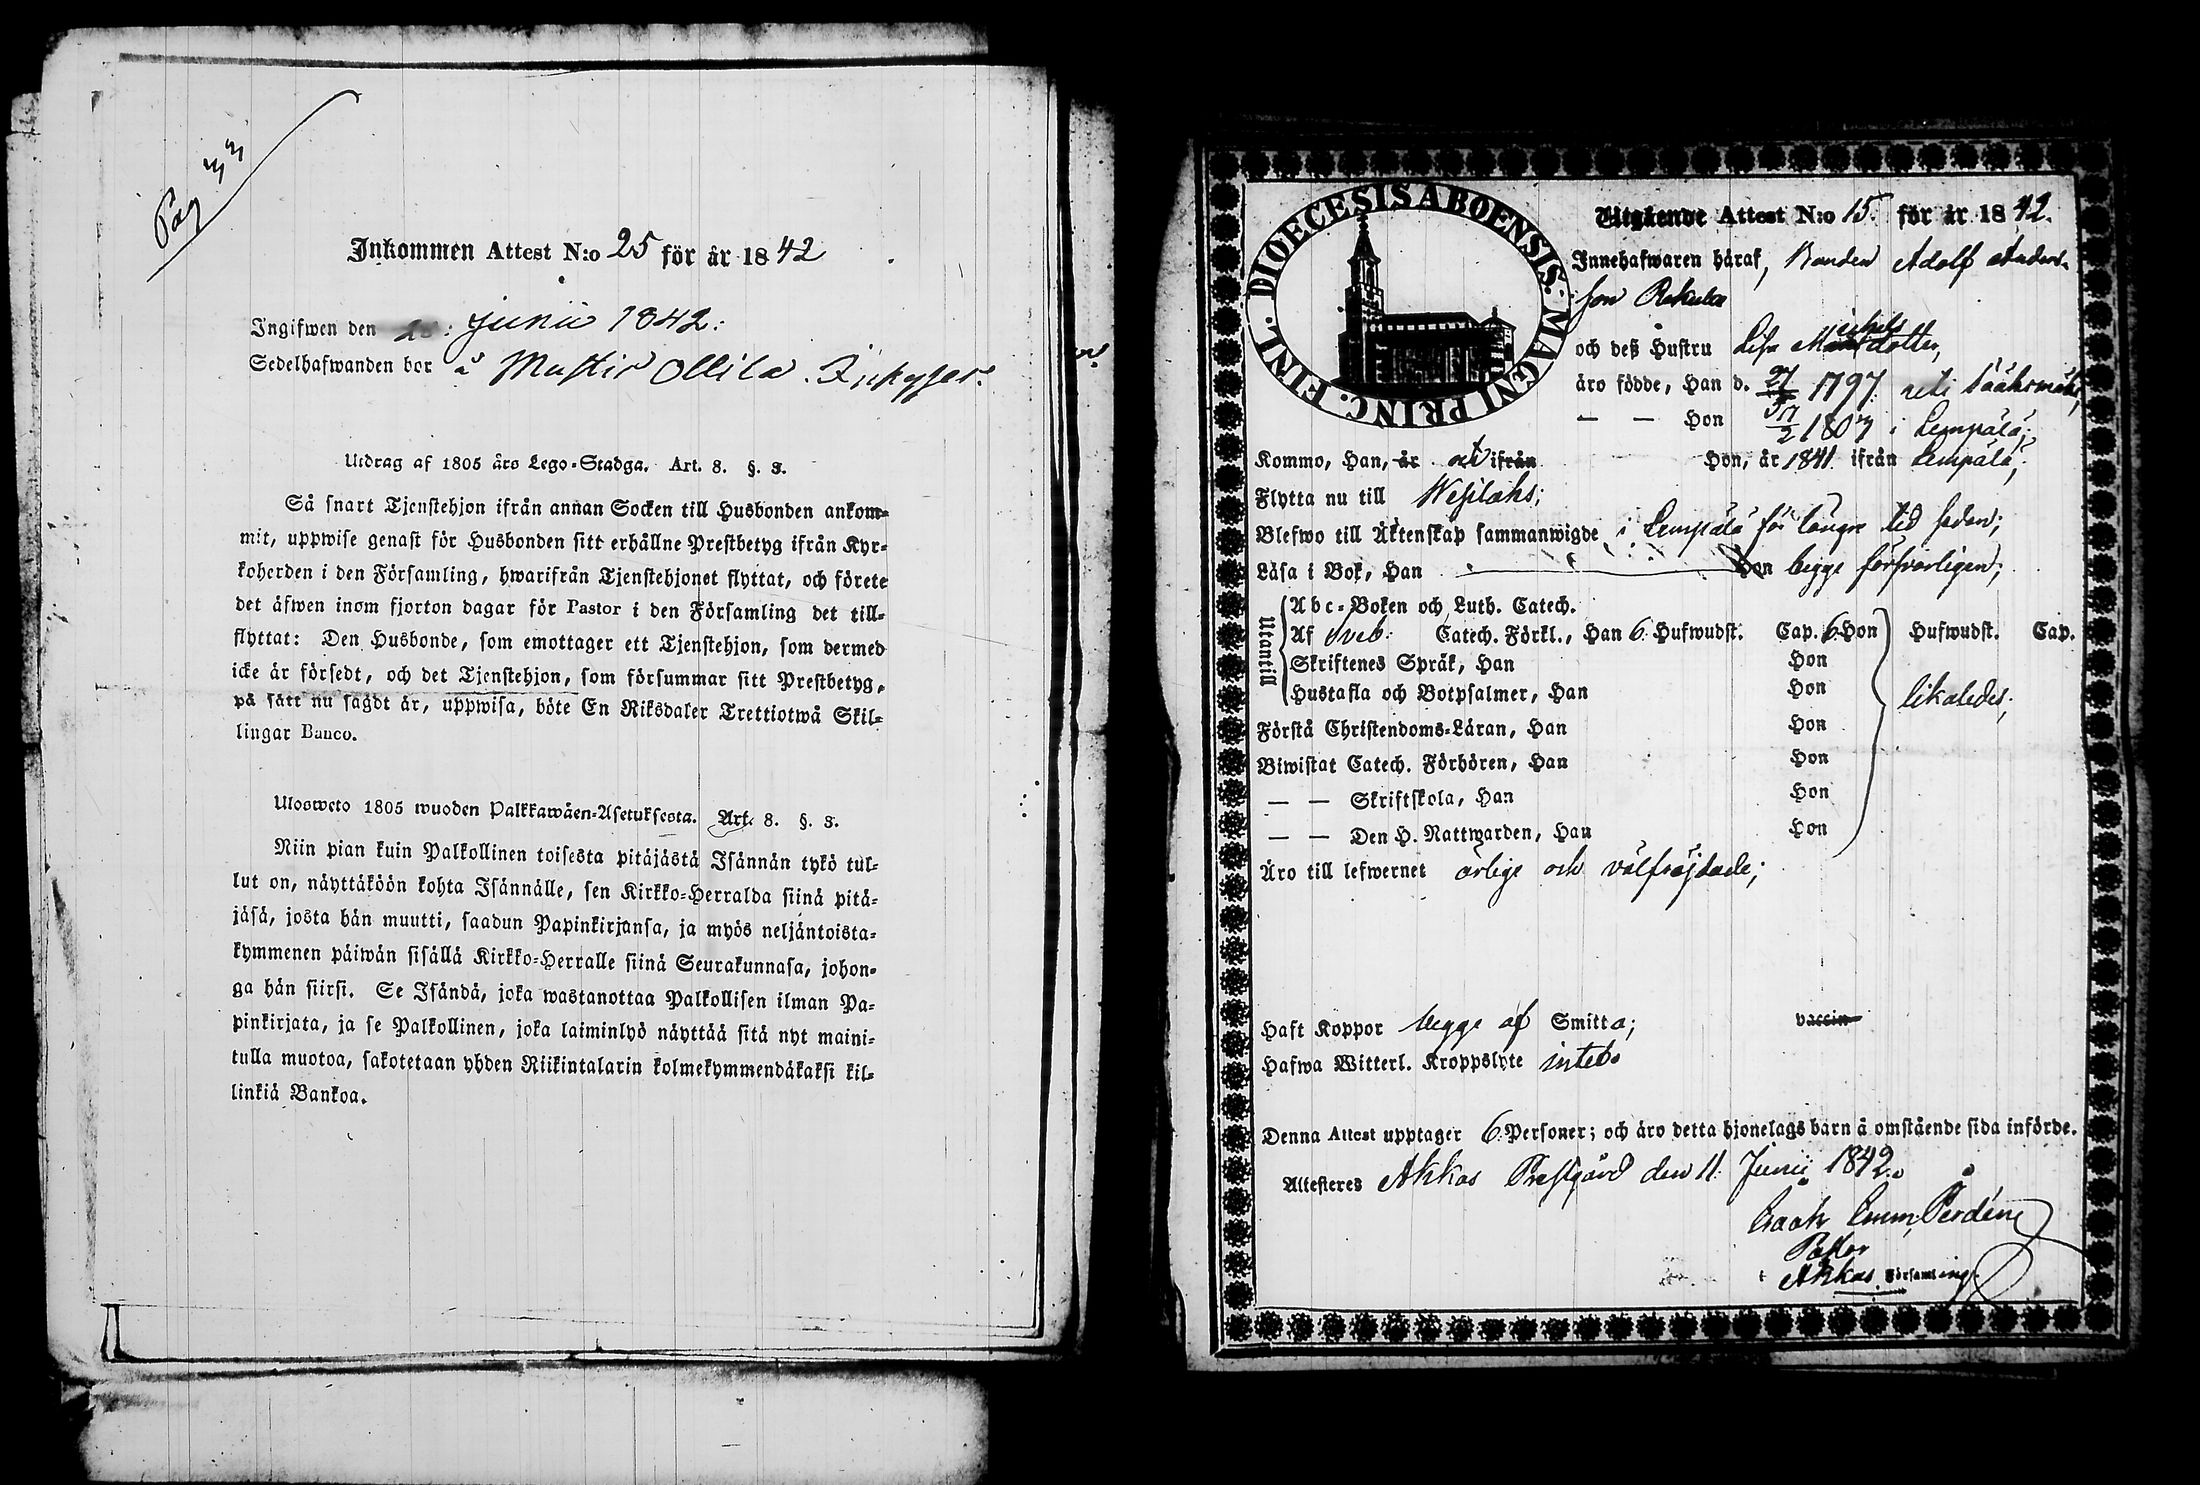 Pag 33
Inkommen Attest N:o 25 för år 1842
Ingifwen den Junii 1842:
Sedelhafwanden bor å Ollila
Utdrag af 1805 års Lego-Stadga. Art. 8. §. 3.
Så snart Tjenstehjon ifrån annan Socken till Husbonden ankom-
mit, uppwise genast för Husbonden sitt erhållne Prestbetyg ifrån Kyr-
koherden i den Församling, hwarifrån Tjenstehjonet flyttat, och förete
det äfwen inom fjorton dagar för Pastor i den Församling det till-
flyttat: Den Husbonde, som emottager ett Tjenstehjon, som dermed
icke är försedt, och det Tjenstehjon, som försummar sitt Prestbetyg,
på sätt nu sagdt är, uppwisa, böte En Riksdaler Trettiotwå Skil-
lingar Banco.
Ulosweto 1805 wuoden Palkkawäen-Asetuksesta. Art. 8. §. 3.
Niin pian kuin Palkollinen toisesta pitäjästä Isännän tykö tul-
lut on, näyttäköön kohta Isännälle, sen Kirkko-Herralda siinä pitä-
jäsä, josta hän muutti, saadun Papinkirjansa, ja myös neljäntoista-
kymmenen päiwän sisällä Kirkko-Herralle siinä Seurakunnasa, johon-
ga hän siirsi. Se Isändä, joka wastanottaa Palkollisen ilman Pa-
pinkirjata, ja se Palkollinen, joka laiminlyö näyttää sitä nyt maini-
tulla muotoa, sakotetaan yhden Riikintalarin kolmekymmendäkaksi kil-
linkiä Bankoa.
DIOECESIS ABOENSIS. MAGNI PRINC. FINL.
Utgående Attest N:o 15. för år 1842.
Innehafwaren häraf, Bonden Adolf Anders-
son
och deß Hustru Lisa Michelsdotter,
äro födde, Han d. 27 1797
— — Hon 1807 i Lempälä;
Kommo, Han, är ifrån Hon, år 1841 ifrån Lempälä;
Flytta nu till Wesilaks;
Blefwo till Äktenskap sammanwigde i Lempälä för längre tid sedan;
Läsa i Bok, Han Hon begge försvarligen;
Utantill
Abc-Boken och Luth. Catech.
Af Sveb. Catech. Förkl., Han 6 Hufwudst. Cap. 6 Hon Hufwudst. Cap.
Skriftenes Språk, Han Hon
Hustafla och Botpsalmer, Han Hon likaledes;
Förstå Christendoms-Läran, Han Hon
Biwistat Catech. Förhören, Han Hon
— — Skriftskola, Han Hon
— — Den H. Nattwarden, Han Hon
Äro till lefwernet ärlige och välfräjdade;
Haft Koppor begge af Smitta; vaccin
Hafwa Witterl. Kroppslyte intet.
Denna Attest upptager 6 Personer; och äro detta hjonelags barn å omstående sida införde.
Attesteres Akkas Prestgård den 11 Junii 1842.
Isaak Emm.
Pastor
i Akkas Församling.